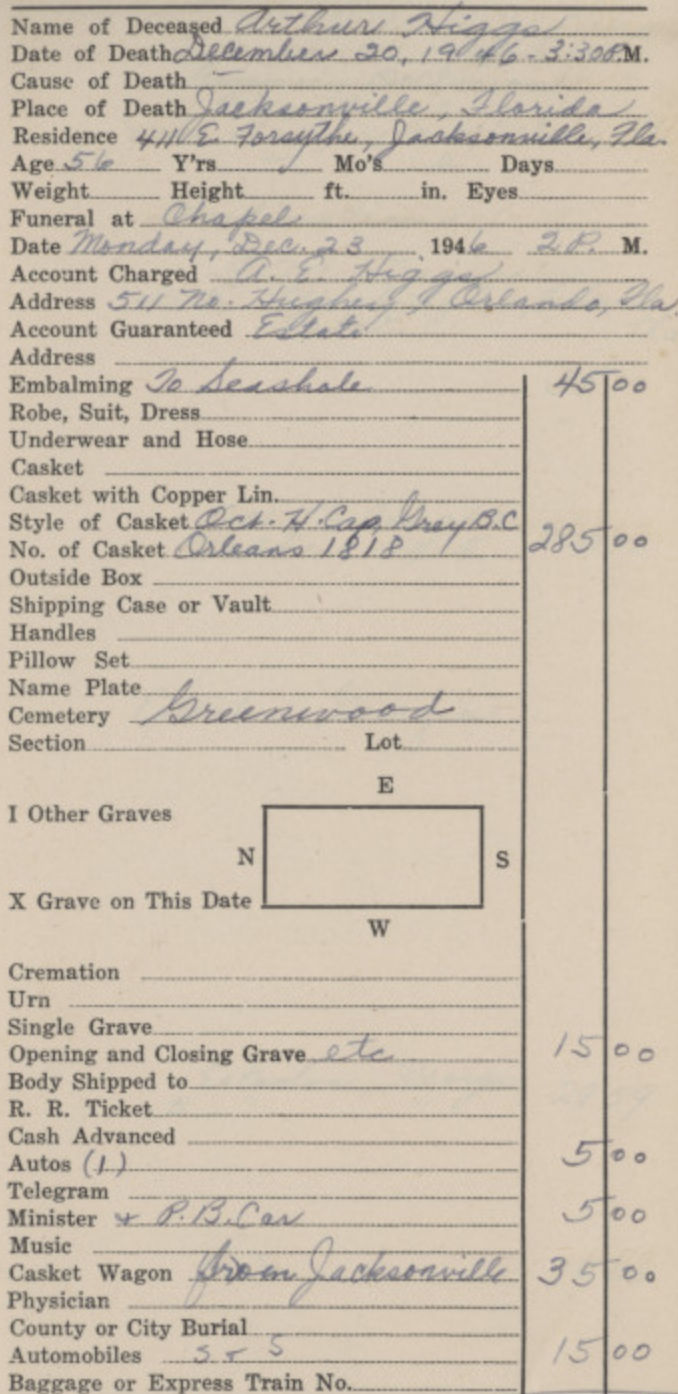 Name of Deceased Arthur Higgs
Date of Death December 20, 1946 - 3:30 P.M.
Cause of Death —
Place of Death Jacksonville, Florida
Residence 411 E. Forsythe, Jacksonville, Fla.
Age 56 Y'rs Mo's Days
Weight Height ft. in. Eyes
Funeral at Chapel
Date Monday, Dec. 23 1946 2 P. M.
Account Charged A. E. Higgs
Address 511 No. Hughey, Orlando, Fla.
Account Guaranteed Estate
Address
Embalming To Seashole 45 00
Robe, Suit, Dress
Underwear and Hose
Casket
Casket with Copper Lin.
Style of Casket Oct. H. Cap Grey B.C
No. of Casket Orleans 1818 285 00
Outside Box
Shipping Case or Vault
Handles
Pillow Set
Name Plate
Cemetery Greenwood
Section Lot
E
I Other Graves
N S
X Grave on This Date
W
Cremation
Urn
Single Grave
Opening and Closing Grave etc 15 00
Body Shipped to
R. R. Ticket
Cash Advanced
Autos (1) 5 00
Telegram
Minister + P.B. Car 5 00
Music
Casket Wagon from Jacksonville 35 00
Physician
County or City Burial
Automobiles 5 + 5 15 00
Baggage or Express Train No.